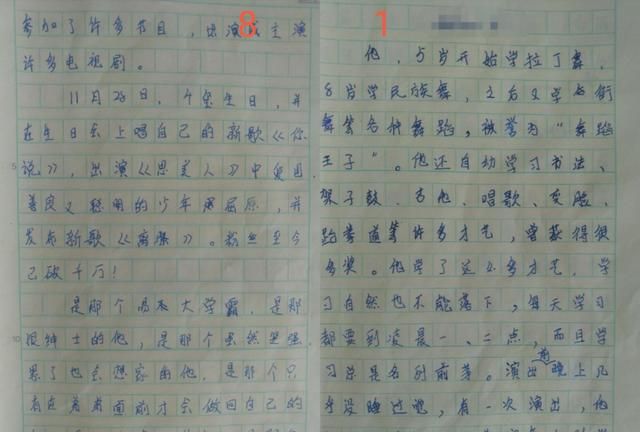 8
参加了许多节目，出演或主演
许多电视剧。
11月28日，千玺生日，并
在生日会上唱自己的新歌《你
说》，出演《思美人》中爱国
善良又聪明的少年屈原，并
发布新歌《离骚》。粉丝至今
已破千万！
是那个易大学霸，是那
很绅士的他，是那个虽然坚强
累了也会想家的他，是那个只
有在着者面前才会做回自己的
1
他，5岁开始学拉丁舞，
8岁学民族舞，之后又学会街
舞等各种舞蹈，被誉为“舞蹈
王子”。他还自幼学习书法、
架子鼓、吉他、唱歌、变脸、
跆拳道等许多才艺，曾获得很
多奖。他学了这么多才艺，学
习自然也不能落下，每天学习
都要到凌晨一、二点，而且学
习总是名列前茅。演出前晚上几
乎没睡过觉，有一次演出，他